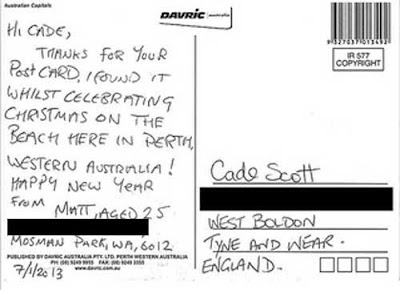 Australian Capitals
DAVRIC australia
HI CADE,
THANKS FOR YOUR
POSTCARD, I FOUND IT
WHILST CELEBRATING
CHRISTMAS ON THE
BEACH HERE IN PERTH,
WESTERN AUSTRALIA!
HAPPY NEW YEAR
FROM MATT, AGED 25
MOSMAN PARK, WA, 6012
PUBLISHED BY DAVRIC AUSTRALIA PTY. LTD. PERTH WESTERN AUSTRALIA
PH: (08) 9249 9955 FAX: (08) 9249 3355
www.davric.com.au
7/1/2013
9 327037 013492
IR 577
COPYRIGHT
Cade Scott
WEST BOLDON
TYNE AND WEAR.
ENGLAND.